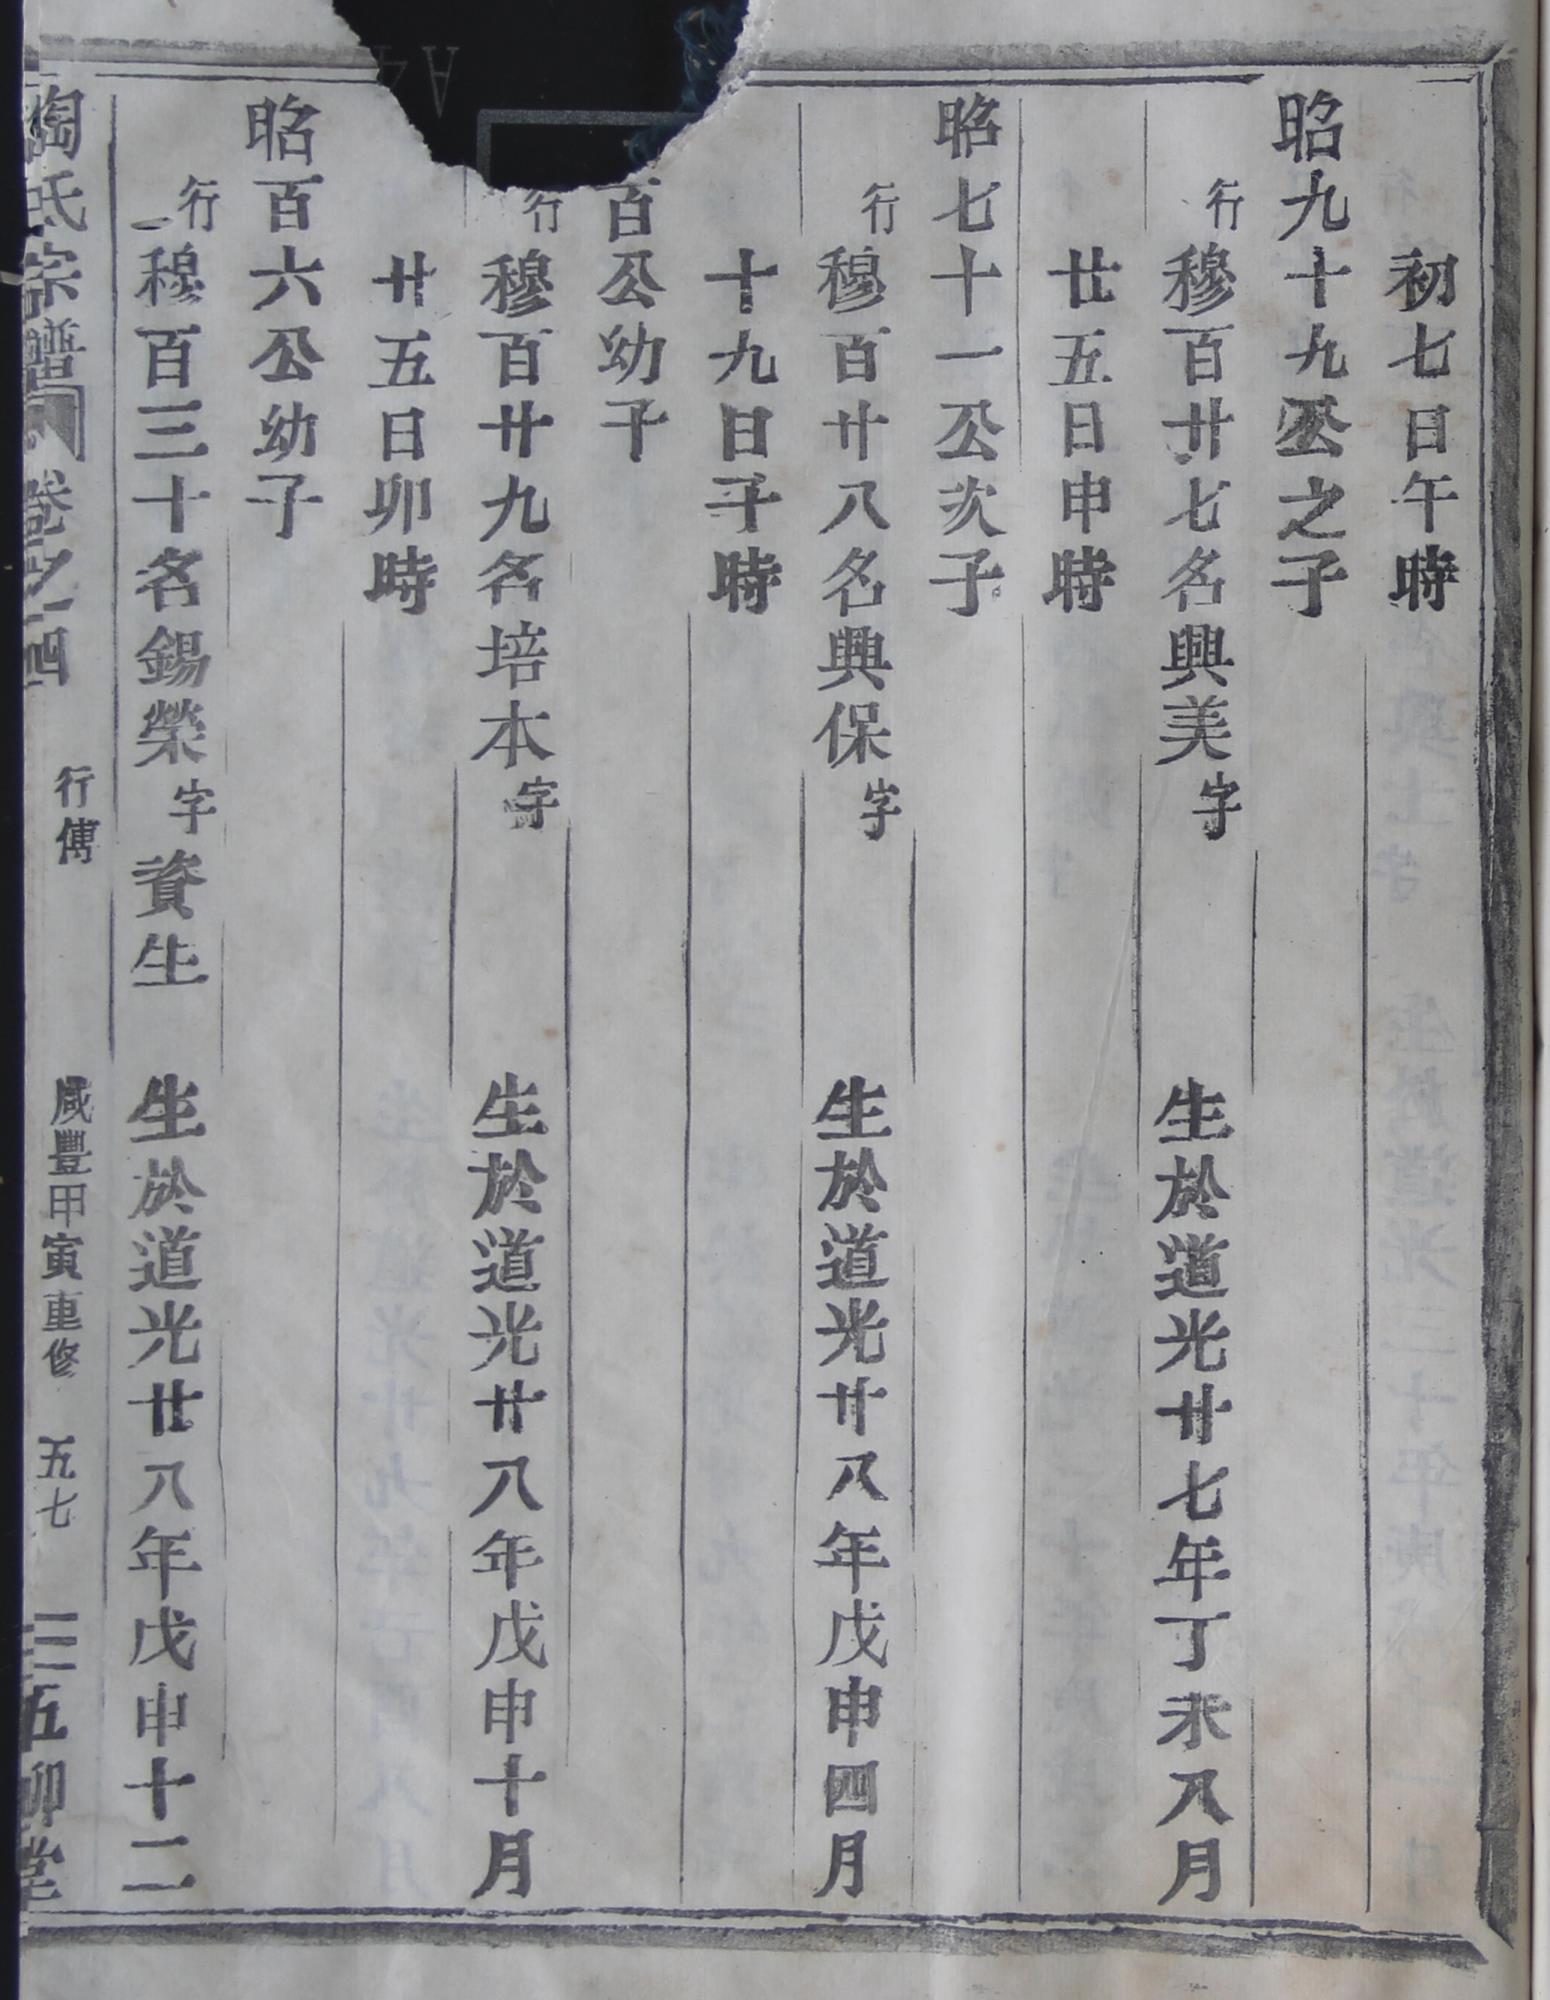 初七日午時
昭九十九公之子
行穆百廿七名興美字 生於道光廿七年丁未八月
廿五日申時
昭七十一公次子
行穆百廿八名興保字 生於道光廿八年戊申四月
十九日子時
百公幼子
行穆百廿九名培本字 生於道光廿八年戊申十月
廿五日卯時
昭百六公幼子
行穆百三十名錫榮字資生 生於道光廿八年戊申十二
陶氏宗譜 卷之四 行傳 咸豐甲寅重修 五七 五柳堂